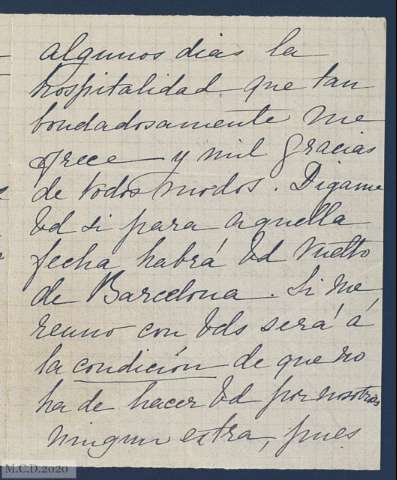 algunos dias la
hospitalidad que tan
bondadosamente me
ofrece y mil gracias
de todos modos. Digame
Vd si para aquella
fecha habrá Vd vuelto
de Barcelona. Si me
reuno con Vds será á
la condición de que no
ha de hacer Vd por nosotras
ningun extra, pues
M.C.D.2020